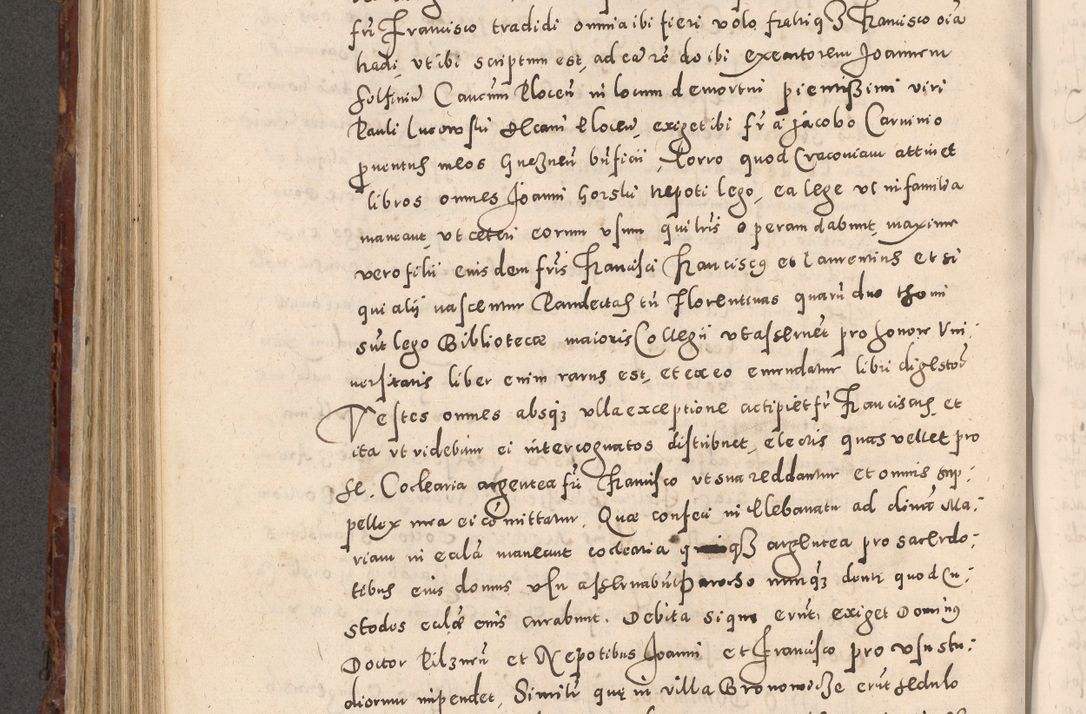 fri Francisco tradidi omnia ibi fieri volo, fratriqȝ Francisco oĩa
tradi, vt ibi scriptum est, ad eã rẽ do ibi exequutorem Joannem
Solfinium Canonicum Plocen̄ in locum demortui pientißimi viri
Pauli Plocen̄, exiget ibi fr̄ a Jacobo Carninio
prouentus meos Gneznen̄ bn̄ficii, Porro quod Cracouiam attinet
libros omnes Joanni Gorski nepoti lego, ea lege vt in familia
maneant, vt ceteri eorum vsum qui lr̄is operam dabunt, maxime
vero filii eiusdem fr̄is Francisci Franciscus et Laurentius et si
qui alii nascentur Pandectas tn̄ Florentinas quarū duo thomi
sūt lego Bibliotecæ maioris Collegii vt asseruēt pro honore Vni-
uersitatis liber enim rarus est, et ex eo emendatur libri digestorū
Vestes omnes absqȝ vlla exceptione accipiet fr̄ Franciscus, et
ita vt videbitur ei inter cognatos distribuet, electis quas vellet pro
se. Coclearia argentea fr̄i Francisco vt sua reddantur et omnis sup-
pellex mea ei cōmittatur. Quæ confeci in Klebanatu ad diuā Ma-
riam in eccl̄ia maneant coclearia qȝ argentea pro sacerdo-
tibus eius domus vsu asseruabūt Parocho nunqȝ dentur quod Cu-
stodes eccl̄iæ eius curabunt. Debita si que erūt, exiget Dominus
Doctor Pilznen̄ et Nepotibus Joanni et Francisco pro vsu stu-
diorum impendet, Similr̄ quę in villa Bronowicze erūt sedulo